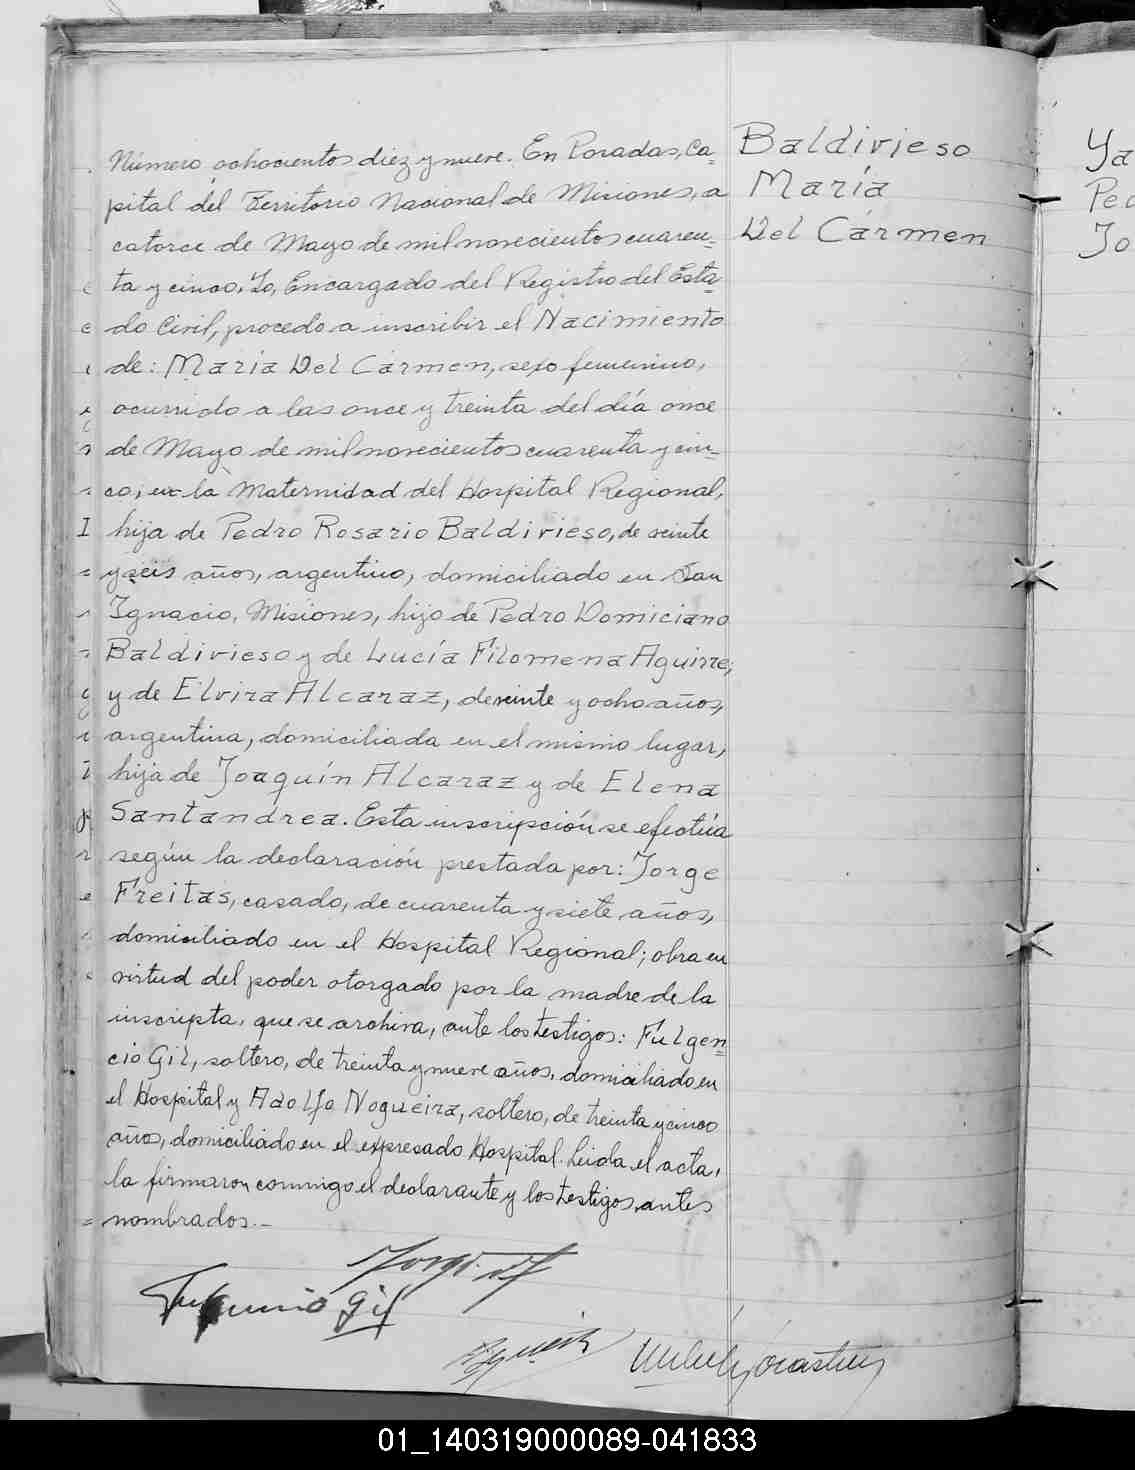 Baldivieso
María
Del Cármen
Número ochocientos diez y nueve. En Posadas, Ca-
pital del Territorio Nacional de Misiones, a
catorce de Mayo de mil novecientos cuaren-
ta y cinco. Yo, Encargado del Registro del Esta-
do Civil, procedo a inscribir el Nacimiento
de: María Del Cármen, sexo femenino,
ocurrido a las once y treinta del día once
de Mayo de mil novecientos cuarenta y cin-
co, en la Maternidad del Hospital Regional,
hija de Pedro Rosario Baldivieso, de veinte
y seis años, argentino, domiciliado en San
Ignacio, Misiones, hijo de Pedro Domiciano
Baldivieso y de Lucía Filomena Aguirre,
y de Elvira Alcaraz, de veinte y ocho años,
argentina, domiciliada en el mismo lugar,
hija de Joaquín Alcaraz y de Elena
Santandrea. Esta inscripción se efectúa
según la declaración prestada por: Jorge
Freitas, casado, de cuarenta y siete años,
domiciliado en el Hospital Regional; obra en
virtud del poder otorgado por la madre de la
inscripta, que se archiva, ante los testigos: Fulgen-
cio Gil, soltero, de treinta y nueve años, domiciliado en
el Hospital y Adolfo Nogueira, soltero, de treinta y cinco
años, domiciliado en el expresado Hospital. Leída el acta,
la firmaron conmigo el declarante y los testigos, antes
nombrados.-
Gil
Ya
Ped
Jo
01_140319000089-041833